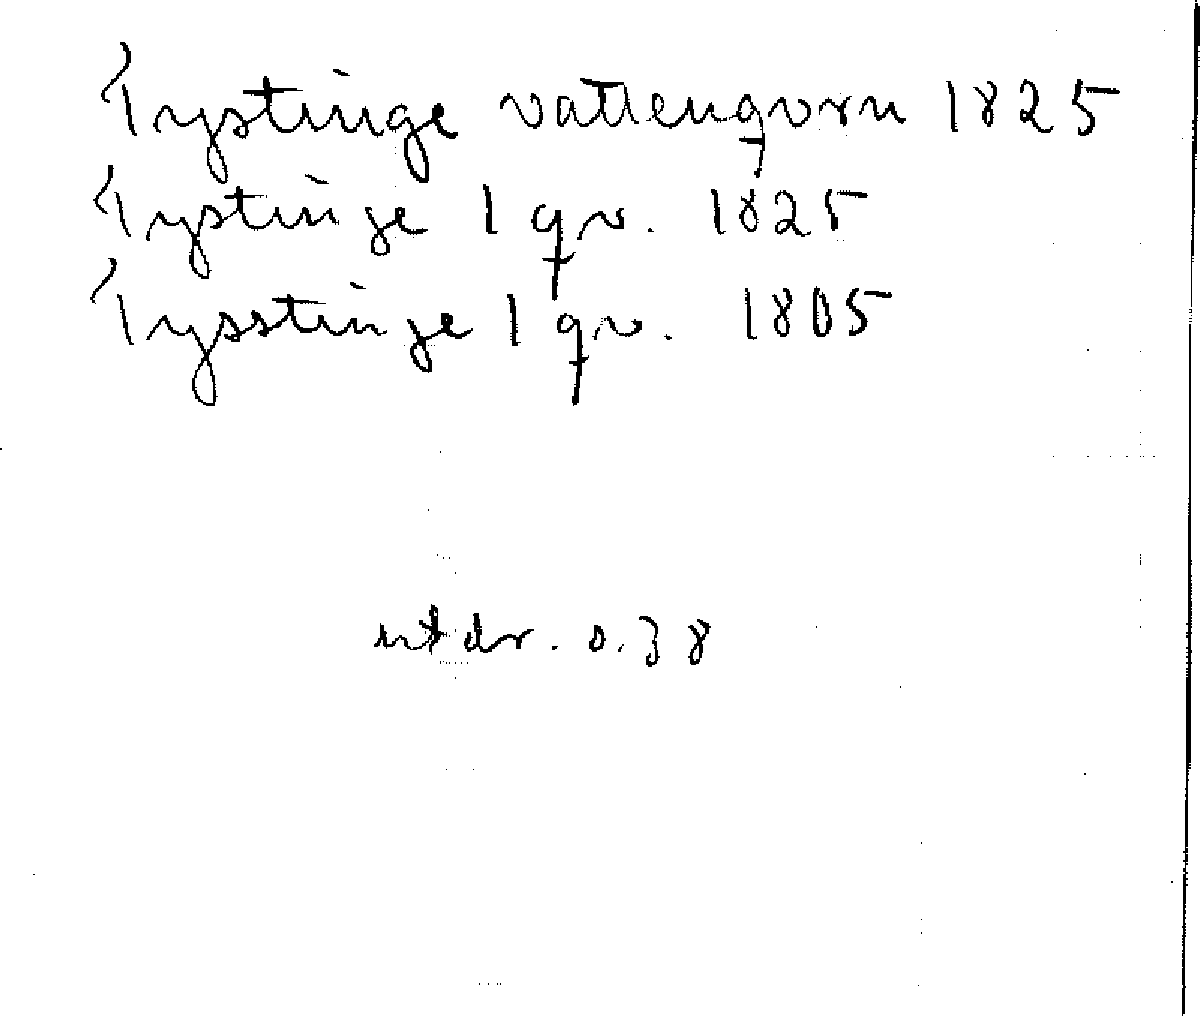 Tystinge vattenqvarn 1825
Tystinge 1 qv. 1825
Tysstinge 1 qv. 1805
utdr. s. 38